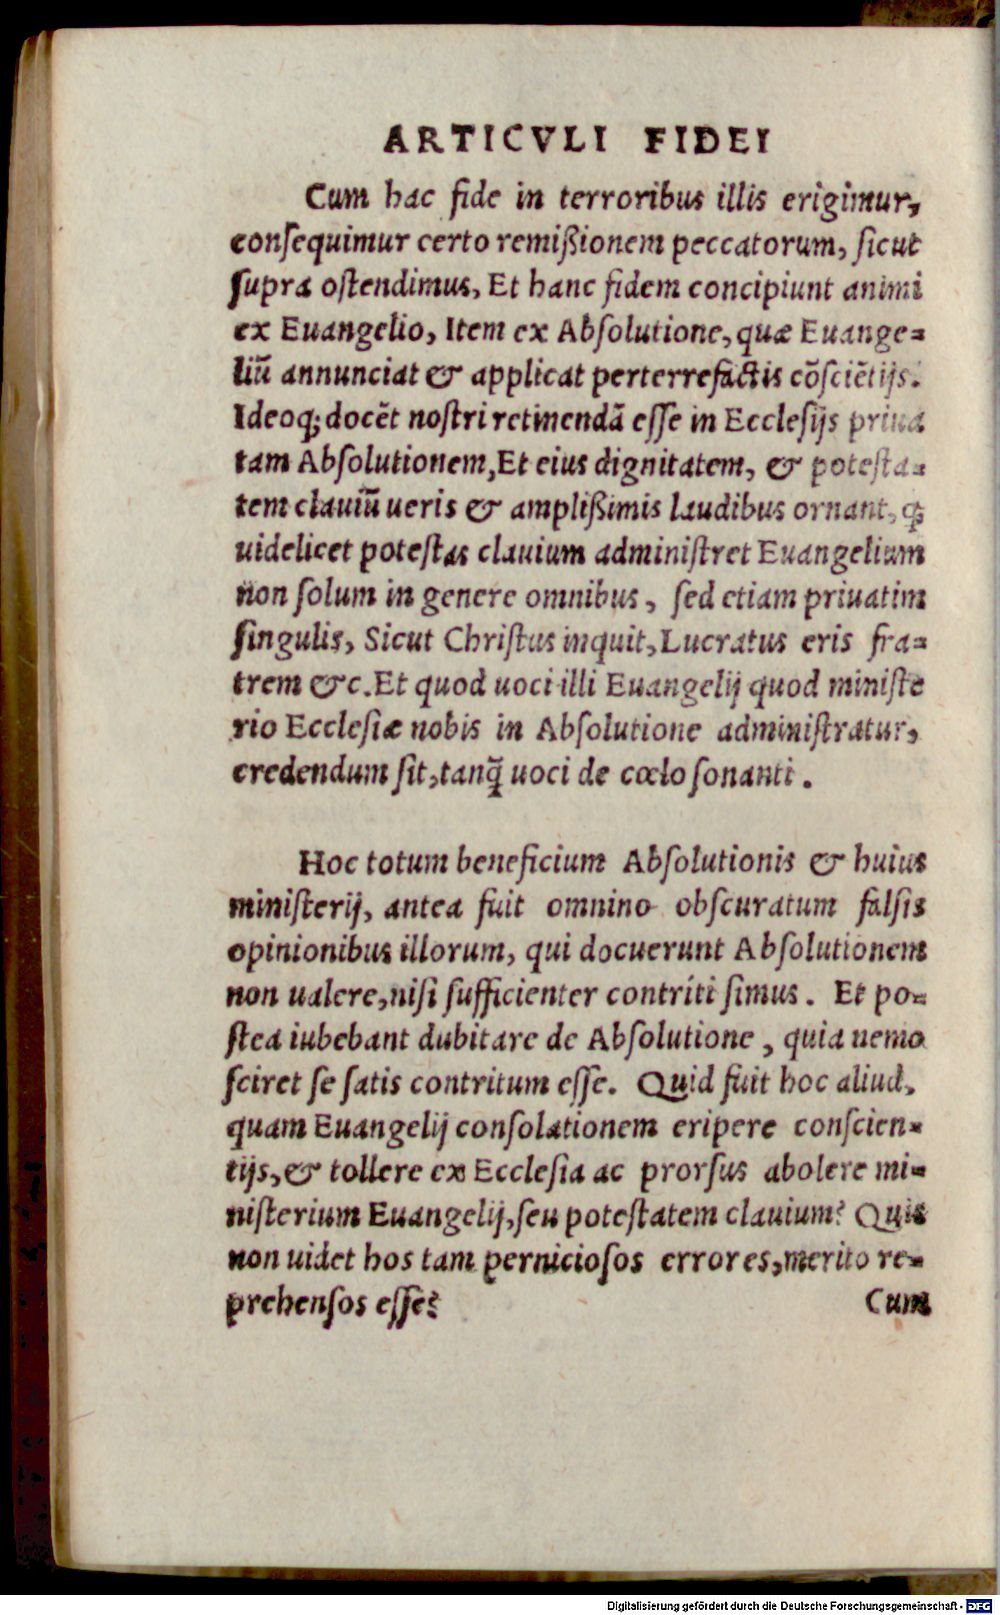 ARTICVLI FIDEI
Cum hac fide in terroribus illis erigimur,
consequimur certo remißionem peccatorum, sicut
supra ostendimus, Et hanc fidem concipiunt animi
ex Euangelio, Item ex Absolutione, quæ Euange=
liū annunciat & applicat perterrefactis cōsciētijs.
Ideoq; docēt nostri retinendā esse in Ecclesijs priua
tam Absolutionem, Et eius dignitatem, & potesta=
tem clauiū ueris & amplißimis laudibus ornant, ꝙ
uidelicet potestas clauium administret Euangelium
non solum in genere omnibus, sed etiam priuatim
singulis, Sicut Christus inquit, Lucratus eris fra=
trem &c. Et quod uoci illi Euangelij quod ministe
rio Ecclesiæ nobis in Absolutione administratur,
credendum sit, tanq̃ uoci de cœlo sonanti.
Hoc totum beneficium Absolutionis & huius
ministerij, antea fuit omnino obscuratum falsis
opinionibus illorum, qui docuerunt Absolutionem
non ualere, nisi sufficienter contriti simus. Et po=
stea iubebant dubitare de Absolutione, quia nemo
sciret se satis contritum esse. Quid fuit hoc aliud,
quam Euangelij consolationem eripere conscien=
tijs, & tollere ex Ecclesia ac prorsus abolere mi=
nisterium Euangelij, seu potestatem clauium? Quis
non uidet hos tam perniciosos errores, merito re=
prehensos esse?
Cum
Digitalisierung gefördert durch die Deutsche Forschungsgemeinschaft - DFG